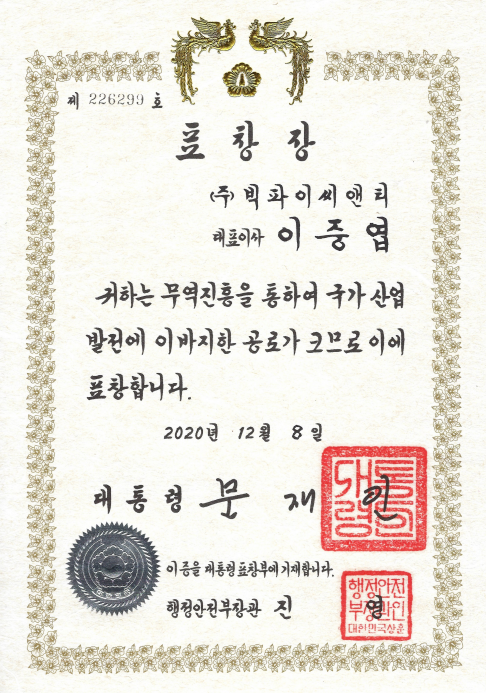 제 226299 호
표창장
(주) 빅파이씨앤티
대표이사 이중엽
귀하는 무역진흥을 통하여 국가 산업
발전에 이바지한 공로가 크므로 이에
표창합니다.
2020년 12월 8일
대통령 문재인
대통령의인
이 증을 대통령표창부에 기재합니다.
행정안전부장관 진영
행정안전
부장관인
대한민국상훈